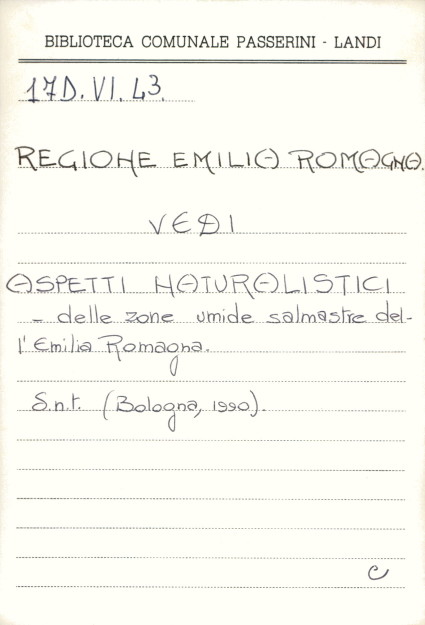 BIBLIOTECA COMUNALE PASSERINI - LANDI
17D.VI.43.
REGIONE EMILIA ROMAGNA.
VEDI
ASPETTI NATURALISTICI
- delle zone umide salmastre del-
l'Emilia Romagna.
S.n.t. (Bologna, 1990).
C